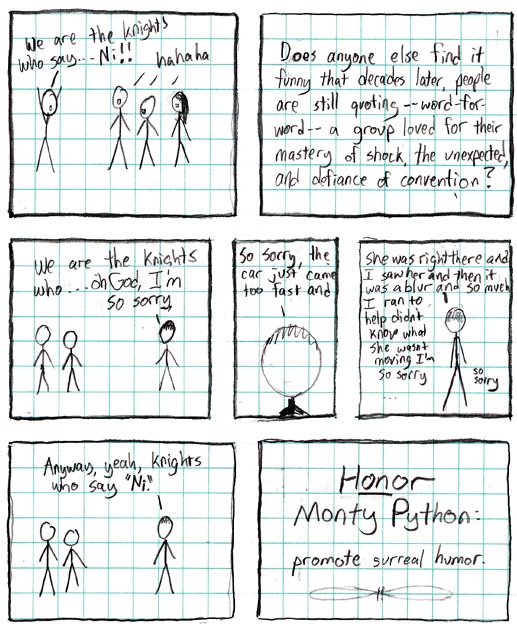 We are the knights
who say...Ni!!
hahaha
Does anyone else find it
funny that decades later, people
are still quoting--word-for-
word-- a group loved for their
mastery of shock, the unexpected,
and defiance of convention?
We are the Knights
who...oh God, I'm
so sorry
So sorry, the
car just came
too fast and
She was right there and
I saw her and then it
was a blur and so much
I ran to
help didn't
know what
She wasn't
moving I'm
so sorry
...
so
sorry
Anyway, yeah, knights
who say "Ni."
Honor
Monty Python:
promote surreal humor.